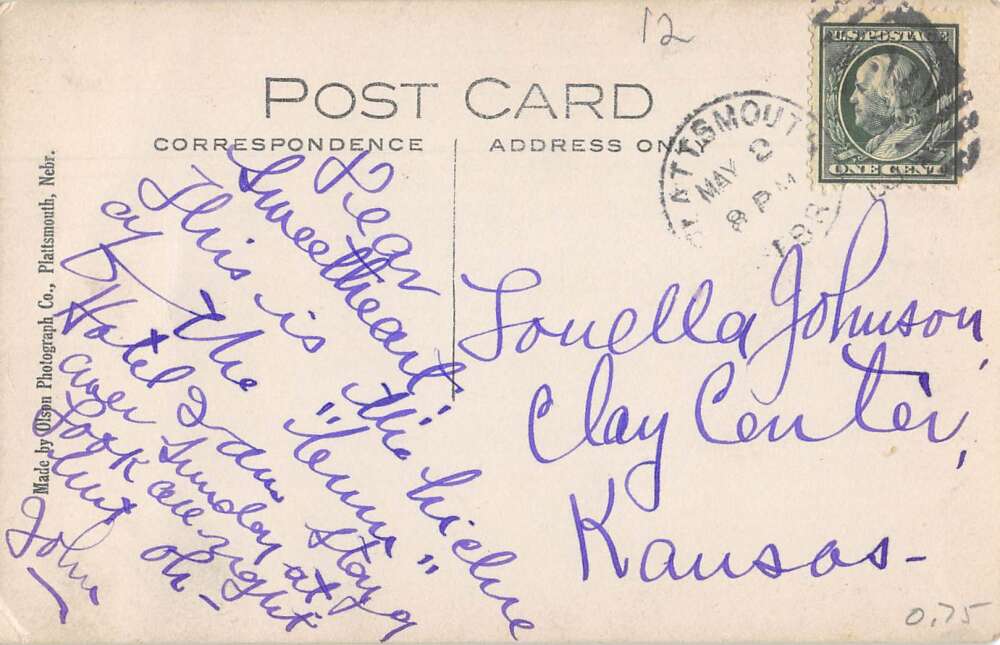 12
U.S. POSTAGE
ONE CENT
POST CARD
CORRESPONDENCE
ADDRESS ONLY
PLATTSMOUTH
MAY 2
8 PM
NEBR
Made by Olson Photograph Co., Plattsmouth, Nebr.
Dear
Sweetheart,
This is the
of the "
Hotel I am staying
over Sunday at
Look all right
John
Louella Johnson,
Clay Center,
Kansas-
0.75